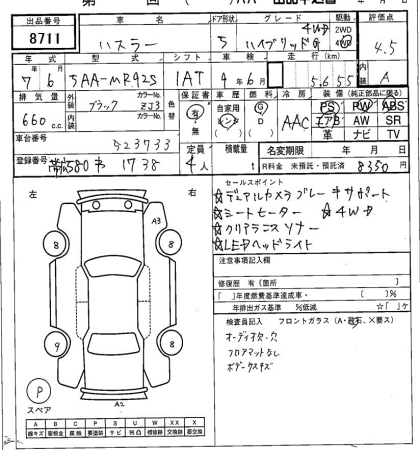 出品番号 車名 ドア形状 グレード 駆動 評価点
8711 ハスラー 5 ハイブリッドG 4WD 2WD 4WD 4.5
年式 型式 シフト 車検 走行(km) 内装
7年 6月 5AA-MR92S IAT 4年6月 5,655 A
排気量 外装 カラーNo. 色替 保証書 車歴 燃料 冷房 装備(純正部品に限る)
660c.c. ブラック ZJ3 有・無 自家用 レンタ G D AAC PS PW ABS
内装 カラーNo. エアB AW SR
革 ナビ TV
車台番号 523733 定員 積載量 名変期限 年 月 日
登録番号 帯広580 1738 4人 t R料金 未預託・預託済 8350円
左 右
セールスポイント
☆デュアルカメラブレーキサポート
☆シートヒーター ☆4WD
☆クリアランスソナー
☆LEDヘッドライト
注意事項記入欄
修復歴 有(箇所 )
「 」年度燃費基準達成車・( )%
年排出ガス基準 %低減 ☆「 」ケ
検査員記入 フロントガラス(A・飛石、X要ス)
オーディオ欠・穴
フロアマットなし
ボデー小キズ
A3
8 8
9 8
P
スペア
A2
A B C P S U W X XX
線キズ 要板金 腐蝕 要塗装 サビ 凹凸 補修跡 交換跡 要交換